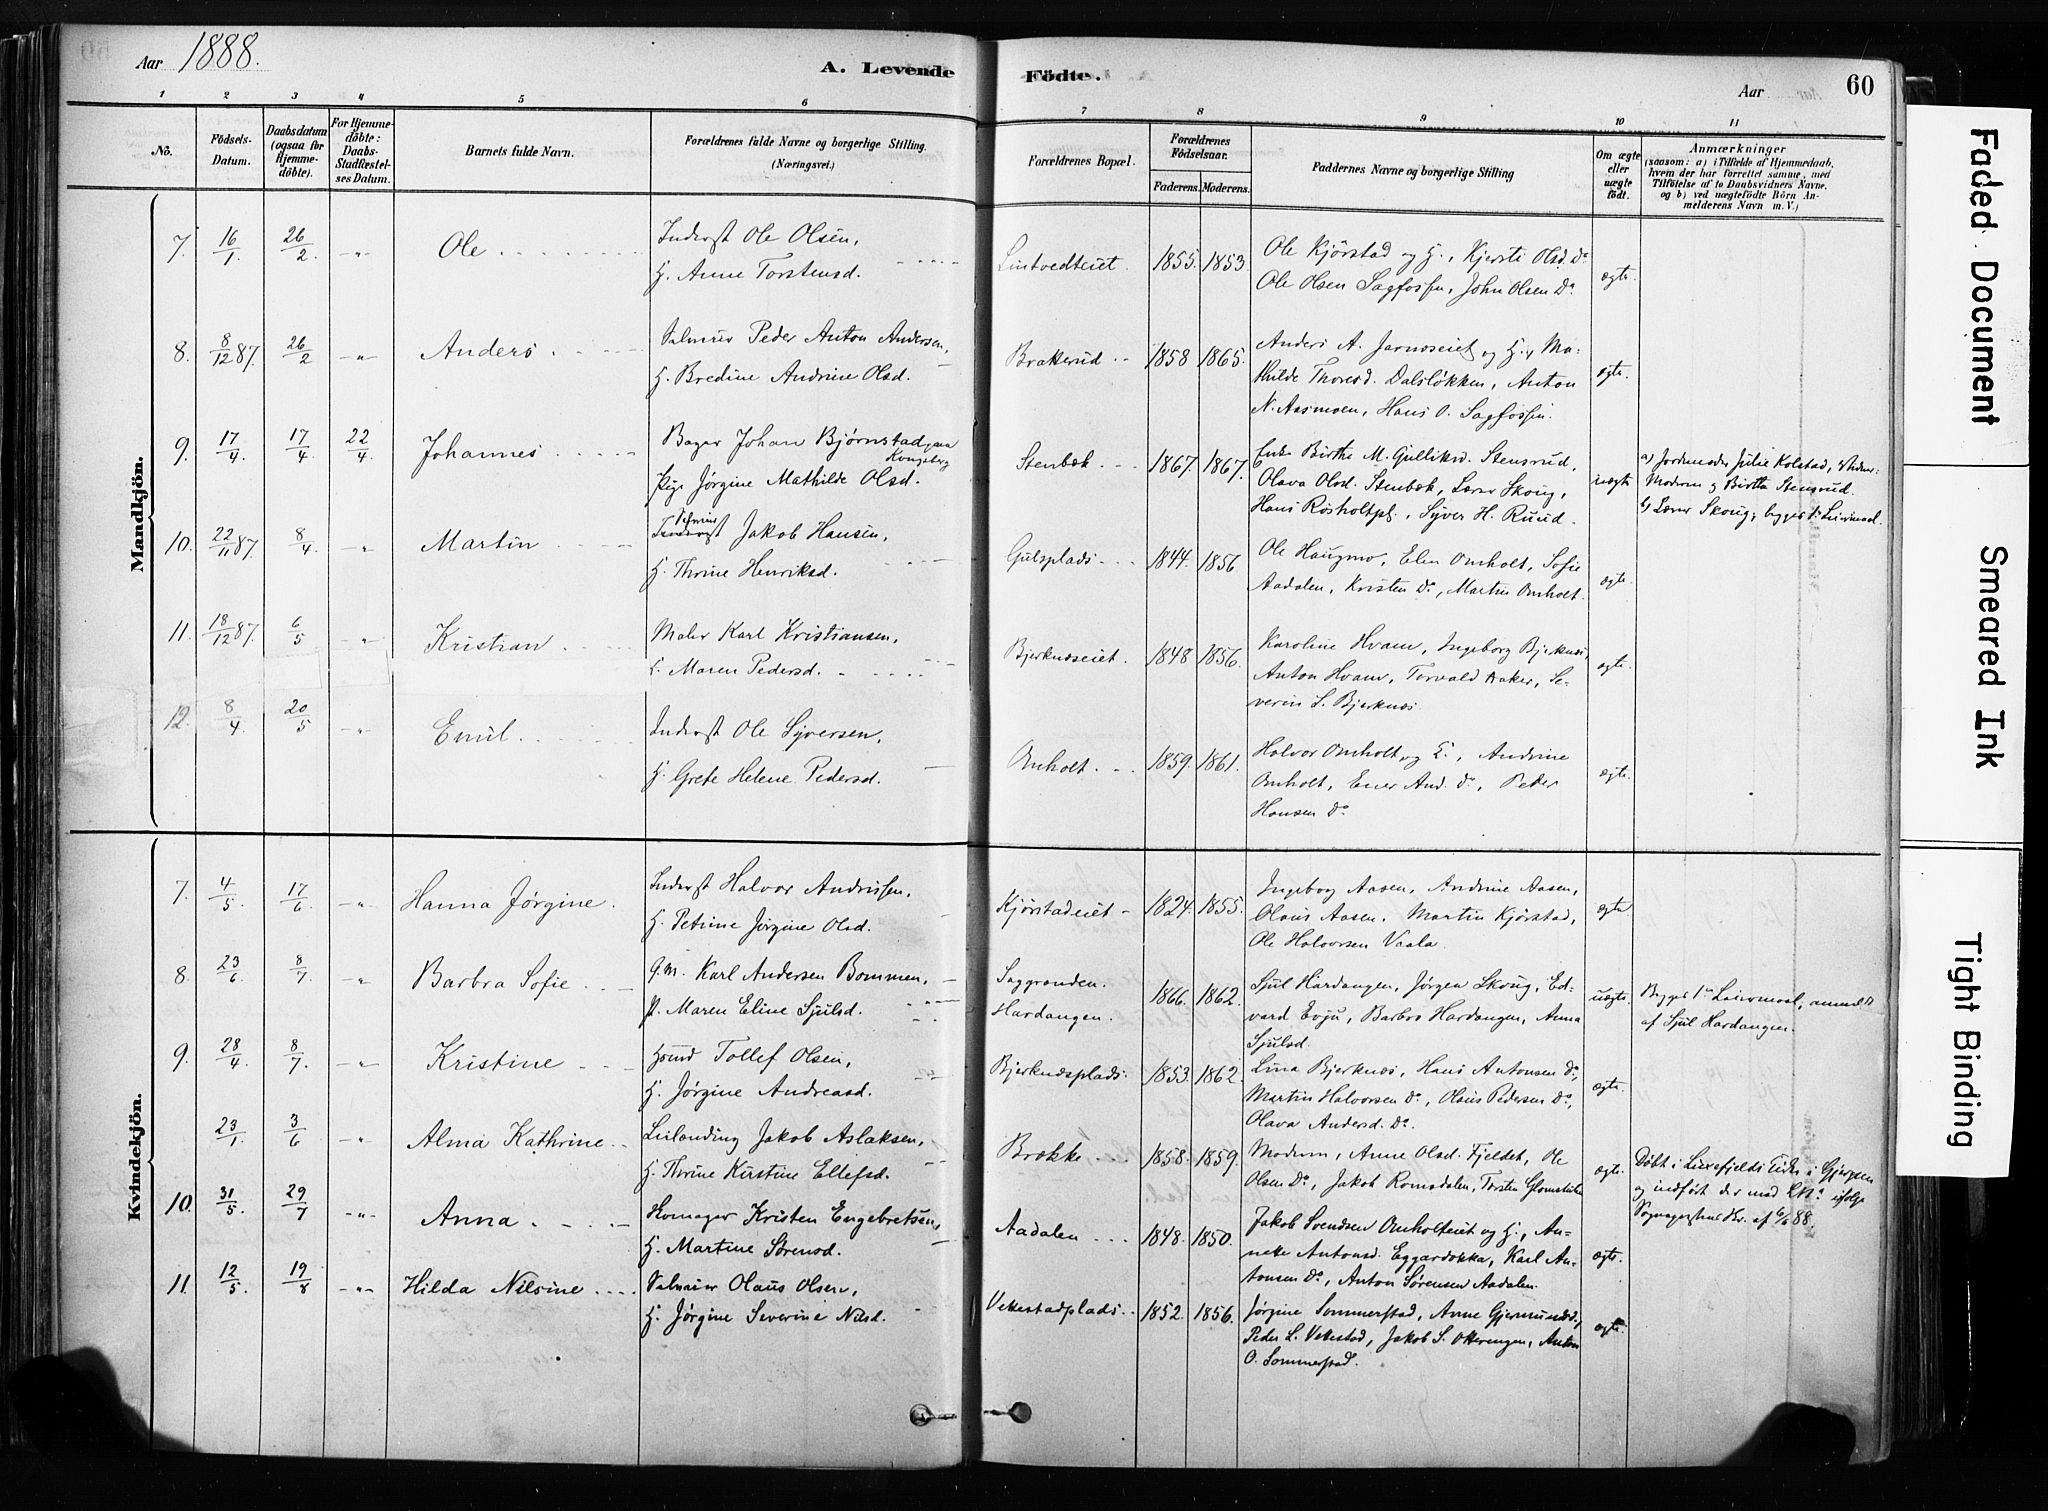 Aar 1888.
A. Levende Födte.
Aar
60
1 2 3 4 5 6 7 8 9 10 11
No.
Födsels-Datum.
Daabsdatum (ogsaa for Hjemmedöbte).
For Hjemmedöbte: Daabs-Stadfæstelses Datum.
Barnets fulde Navn.
Forældrenes fulde Navne og borgerlige Stilling. (Næringsvei.)
Forældrenes Bopæl.
Forældrenes Födselsaar.
Faderens. Moderens.
Faddernes Navne og borgerlige Stilling
Om ægte eller uægte født.
Anmærkninger
(saasom: a) i Tilfælde af Hjemmedaab, hvem der har forrettet samme, med Tilføielse af to Daabsvidners Navne. og b) ved uægtefödte Börn Anmelderens Navn m. V.)
Mandkjön.
7. 16/1 26/2 -"- Ole
Inderst Ole Olsen,
H. Anne Torstensd.
Lintvedteiet. 1855. 1853.
Ole Kjörstad og H., Kjersti Olsd. Do
Ole Olsen Sagfossen, John Olsen Do.
ægte.
8. 8/12 87. 26/2 -"- Anders
Salmager Peder Anton Andersen,
H. Bredine Andrine Olsd.
Brakerud 1858 1865.
Anders A. Jarnæseiet og H., Ma-
thilde Thoresd. Dalsløkken, Anton
N. Aasmoen, Hans O. Sagfossen.
ægte.
9. 17/4 17/4 22/4 Johannes
Bager Johan Bjørnstad paa Kongsberg
Pige Jørgine Mathilde Olsd.
Stenbæk 1867. 1867.
Enke Birthe M. Gulliksd. Stensrud,
Olava Olsd. Stenbæk, Lærer Skoug,
Hans Røsholtpl., Syver H. Ruud.
uægte
a) Jordemoder Julie Kolstad,
Modum og Birthe Stensrud.
b) Lærer Skoug; begges 1ste Leiermaal.
10. 22/11 87. 8/4 -"- Martin
Jakob Hansen,
H. Thrine Henriksd.
Gulsplads 1844. 1856
Ole Haugmo, Elen Omholt, Sofie
Aadalen, Kristen Do, Martin Omholt.
ægte.
11. 18/12 87. 6/5 -"- Kristian
Maler Karl Kristiansen,
H. Maren Pedersd.
Bjerknæseiet. 1848 1856.
Karoline Hvam, Ingeborg Bjerknæs,
Anton Hvam, Torvald Aaker, Se-
verin L. Bjerknæs.
ægte.
12. 8/4 20/5 -"- Emil
Inderst Ole Syversen,
H. Grete Helene Pedersd.
Omholt. 1859. 1861.
Halvor Omholt og H., Andrine
Omholt, Ener And. Do, Peder
Hansen Do
ægte.
Kvindekjön.
7. 4/5 17/6 -"- Hanna Jørgine.
Inderst Halvor Andrissen,
H. Petrine Jørgine Olsd.
Kjørstadeiet 1824. 1855.
Ingeborg Aasen, Andrine Aasen,
Olaus Aasen. Martin Kjørstad,
Ole Halvorsen Vaala.
ægte
8. 23/6 8/7 -"- Barbra Sofie
G.M. Karl Andersen Bommen,
P. Maren Eline Sjulsd.
Saggrenden.
Hardangen. 1866. 1862.
Sjul Hardangen, Jørgen Skoug, Ed-
vard Evju, Barbro Hardangen, Anna
Sjulsd.
uægte.
Begges 1ste Leiermaal, anmeldt
af Sjul Hardangen.
9. 28/4 8/7 -"- Kristine
Husmd Tollef Olsen,
H. Jørgine Andreasd.
Bjerknæsplads. 1853. 1862.
Lina Bjerknæs, Hans Antonsen Do,
Martin Halvorsen Do, Olaus Pedersen Do,
Olava Andersd. Do.
ægte.
23/1 3/6 -"- Alma Kathrine
Leilending Jakob Aslaksen,
H. Thrine Kirstine Ellefsd.
Brække 1858. 1859.
Modum, Anne Olsd. Fjeldet, Ole
Olsen Do, Jakob Romsdalen, Torsten
ægte.
Døbt i Luxefjelds Kirke i Gjerpen
og indført der med L.No. ifølge
Sognepræstens Br. af 6/6 88.
10. 31/5 29/7 -"- Anna
Homager Kristen Engebretsen,
H. Martine Sørensd.
Aadalen 1848. 1850.
Jakob Svendsen Omholteiet og H., An-
nette Antonsd. Eggardokka, Karl An-
tonsen Do, Anton Sørensen Aadalen.
ægte.
11. 12/5 19/8 -"- Hilda Nilsine
Salmager Olaus Olsen,
H. Jørgine Severine Nilsd.
Vekestadplads 1852. 1856.
Jørgine Sommerstad, Anne Gjermundsd.,
Peder L. Vekestad, Jakob S. Otterengen, Anton
O. Sommerstad.
ægte.
Faded Document
Smeared Ink
Tight Binding